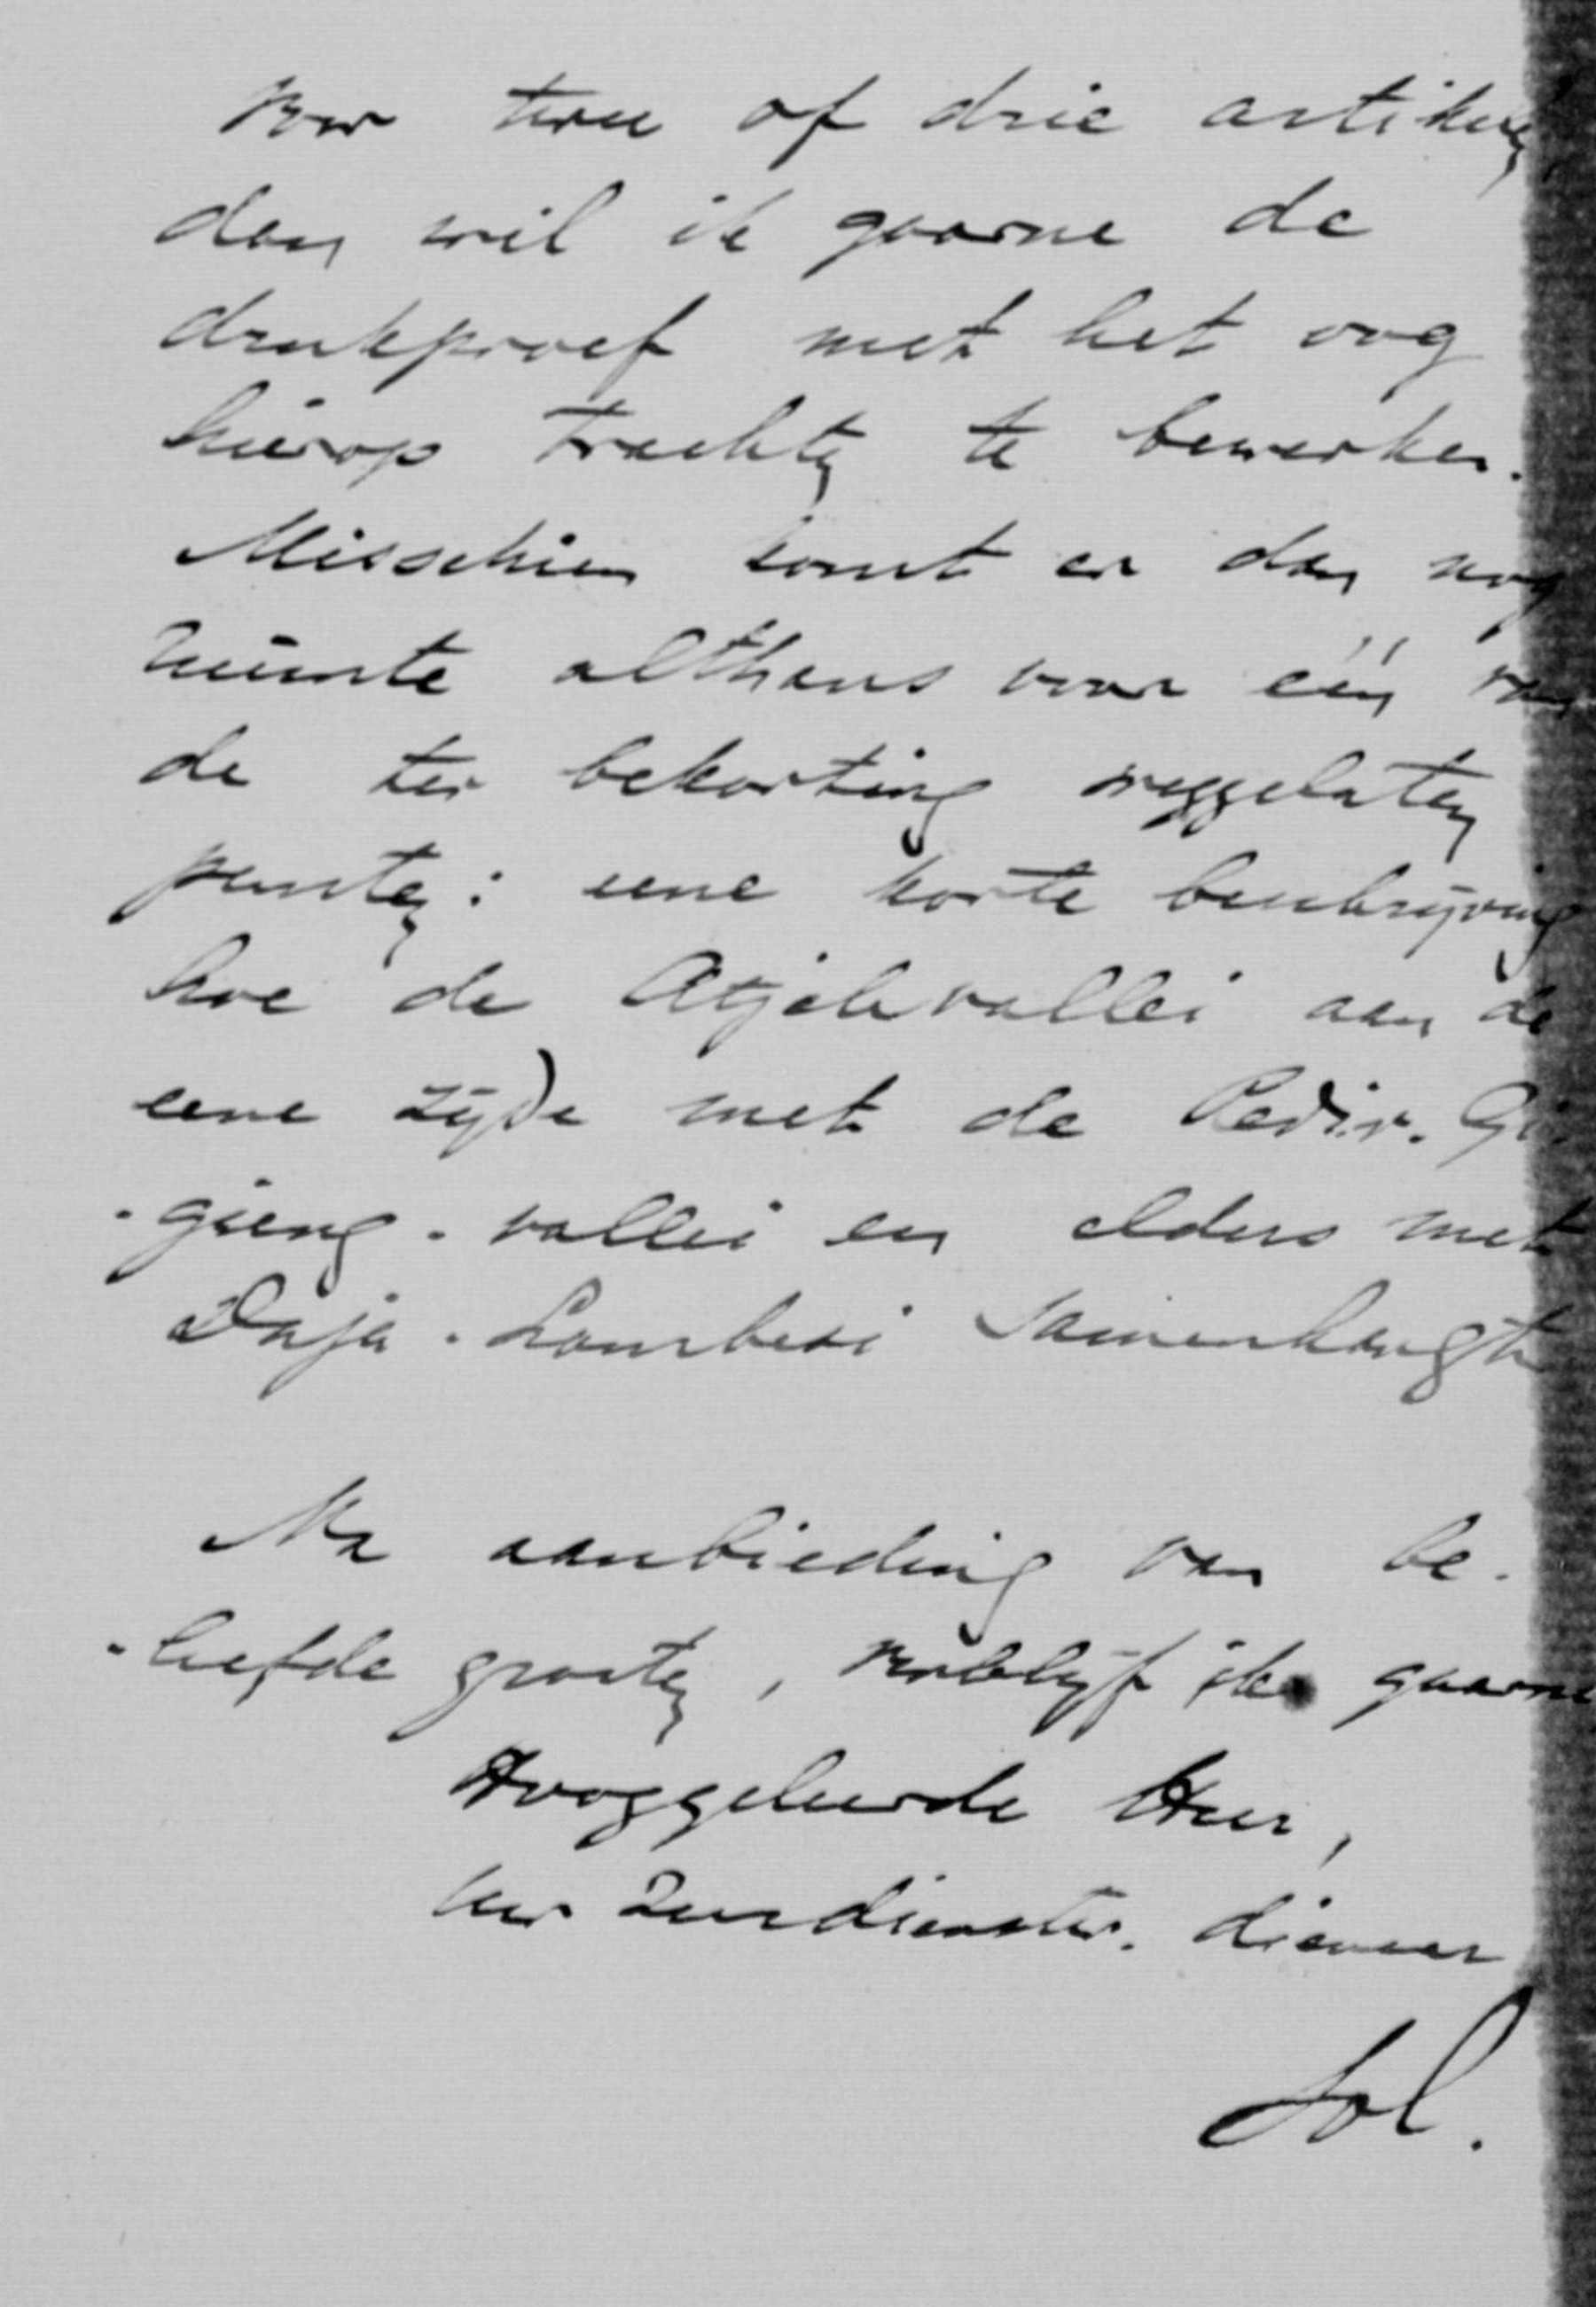 voor twee of drie artikelen,
dan wil ik gaarne de
drukproef met het oog
hierop trachten te bewerken.
Misschien komt er dan nog
ruimte althans voor één van
de ter bekorting weggelaten
punten: eene korte beschrijving
hoe de Atjehvallei aan de
eene zijde met de Pedir-Gi-
-gieng-vallei en elders met
Daja-Lambesi samenhangt
Na aanbieding van be-
-leefde groeten, verblijf ik gaarne
Hooggeleerde Heer,
Uw dienaar
Sol.